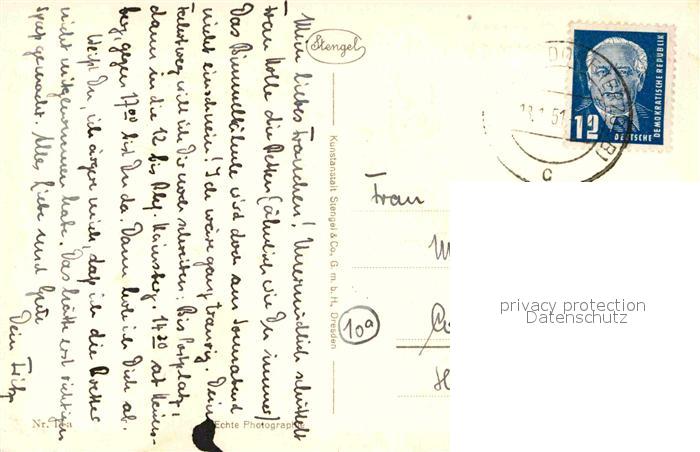 Mein liebes Frauchen! Unermüdlich schüttelt
Frau Holle die Betten (ähnlich wie Du immer)
Das Bimmelbähnle wird doch am Sonnabend
nicht einschnein! Ich wäre ganz traurig. Dein
will ich Dir noch schreiben: Bis Postplatz!
dann in die 12 bis Bhf. 14 20 ab
gegen 17 00 bist Du da. Dann hole ich Dich ab.
Weißt Du, ich ärgere mich, daß ich die Bretter
nicht mitgenommen habe. Das hätte erst richtigen
Spaß gemacht. Alles Liebe und Gute
Dein Fritz
Nr.
Echte Photographie
Stengel
Kunstanstalt Stengel & Co., G. m. b. H., Dresden
10a
Frau
12
DEUTSCHE
DEMOKRATISCHE REPUBLIK
1 51
c
privacy protection
Datenschutz